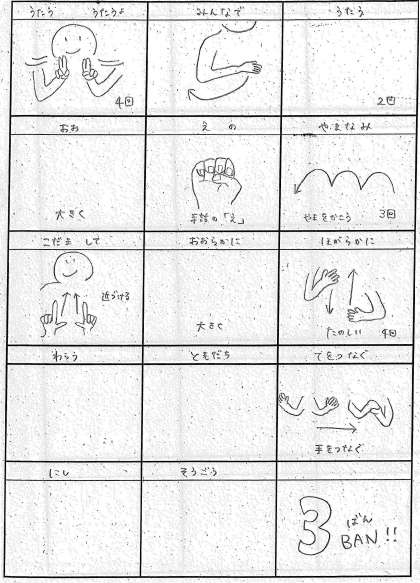 うたう うたうよ
みんなで
うたう
4回
2回
おお
えの
やまなみ
大きく
手話の「え」
やまをかこう 3回
こだま して
おおらかに
ほがらかに
近づける
大きく
たのしい 4回
わらう
ともだち
てをつなぐ
手をつなぐ
にし
そうごう
3 ばん
BAN!!